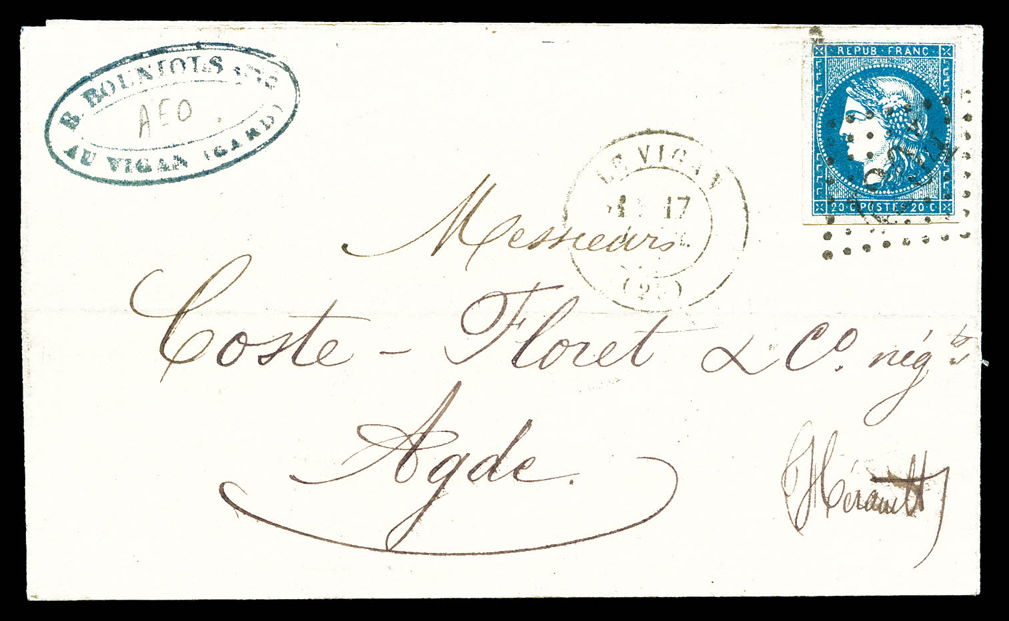 B. BOUNIOLS
AEO
AU VIGAN (GARD)
REPUB·FRANC·
20·C·POSTES·20·C·
LE VIGAN
17
Messieurs
Coste-Floret & Co. négts
Agde.
(Hérault)